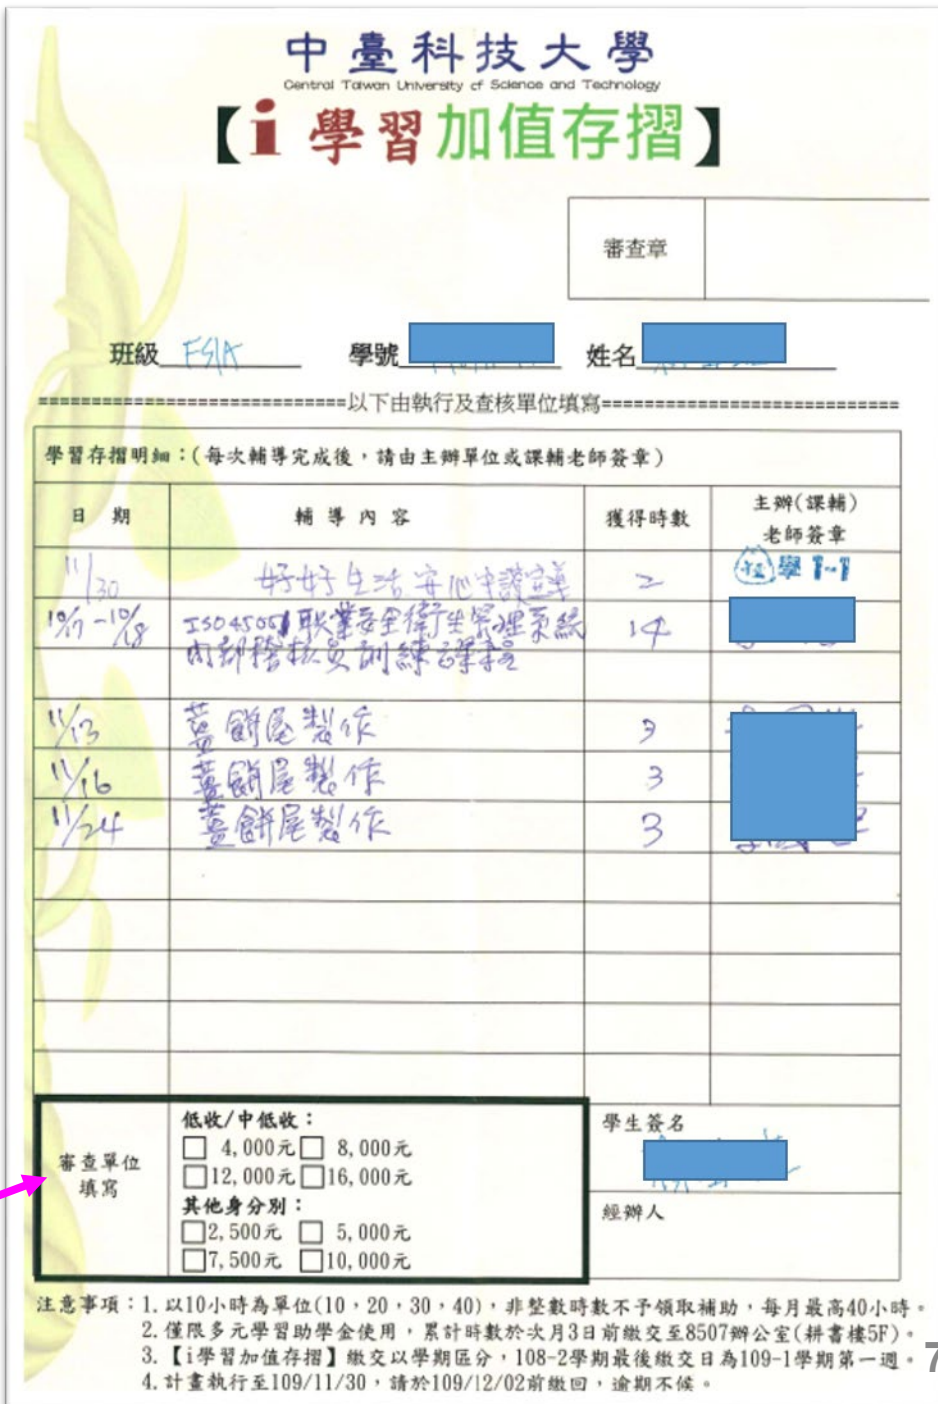 中臺科技大學
Central Taiwan University of Science and Technology
【i 學習加值存摺】
審查章
班級 FS1A 學號 姓名
============================以下由執行及查核單位填寫============================
學習存摺明細：(每次輔導完成後，請由主辦單位或課輔老師簽章)
日 期 輔 導 內 容 獲得時數 主辦(課輔)
老師簽章
11/30 好好生活安心申請宣導 2 學1-1
10/17-10/18 ISO45001职業安全衛生管理系統 14
內部稽核員訓練課程
11/13 薑餅屋製作 3
11/16 薑餅屋製作 3
11/24 薑餅屋製作 3
審查單位
填寫
低收/中低收：
□ 4,000元□ 8,000元
□12,000元□16,000元
其他身分別：
□2,500元 □ 5,000元
□7,500元 □10,000元
學生簽名
經辦人
注意事項：1. 以10小時為單位(10，20，30，40)，非整數時數不予領取補助，每月最高40小時。
2. 僅限多元學習助學金使用，累計時數於次月3日前繳交至8507辦公室(耕書樓5F)。
3. 【i學習加值存摺】繳交以學期區分，108-2學期最後繳交日為109-1學期第一週。
4. 計畫執行至109/11/30，請於109/12/02前繳回，逾期不候。
7